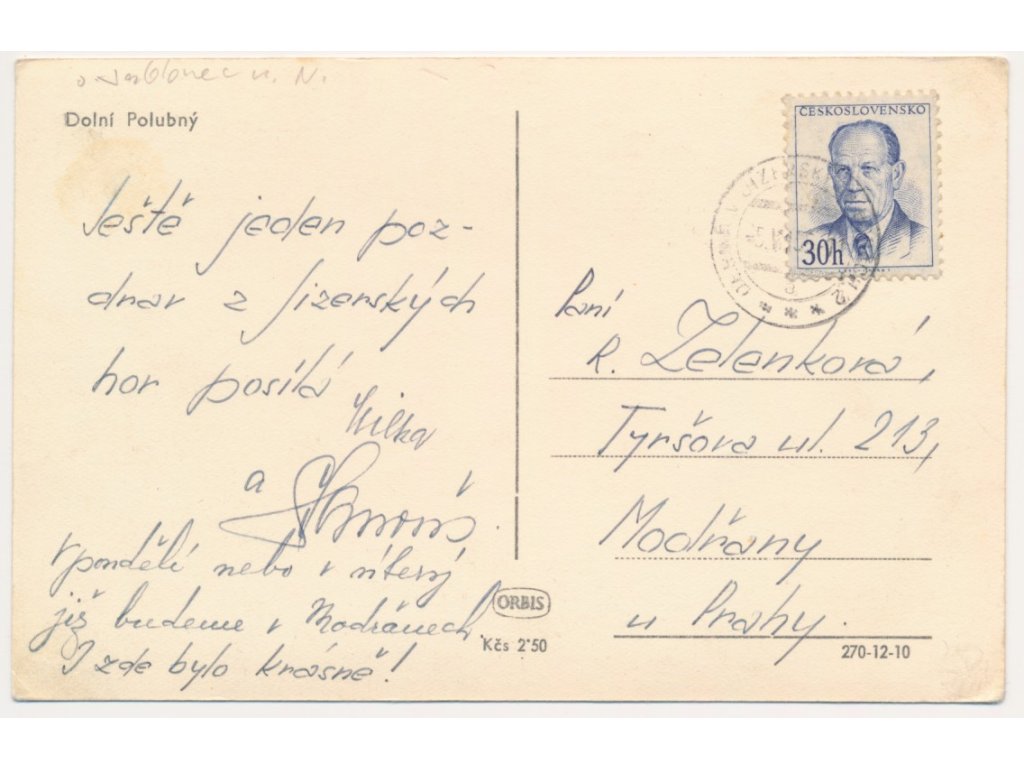 o Jablonec n. N.
Dolní Polubný
Ještě jeden poz-
drav z Jizerských
hor posílá
Milka
a
V pondělí nebo v úterý
již budeme v Modřanech.
I zde bylo krásně!
ORBIS
Kčs 2·50
ČESKOSLOVENSKO
30h
Paní
R. Zelenková,
Tyršova ul. 213,
Modřany
u Prahy.
270-12-10